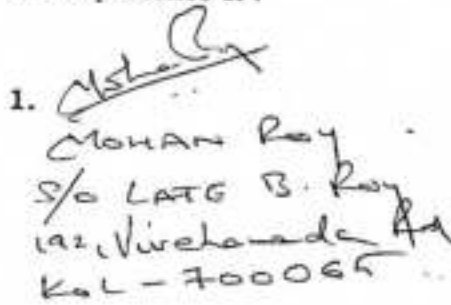 1.
MOHAN Roy
S/o LATE B. Roy
192, Vivekananda Rd
KOL - 700065